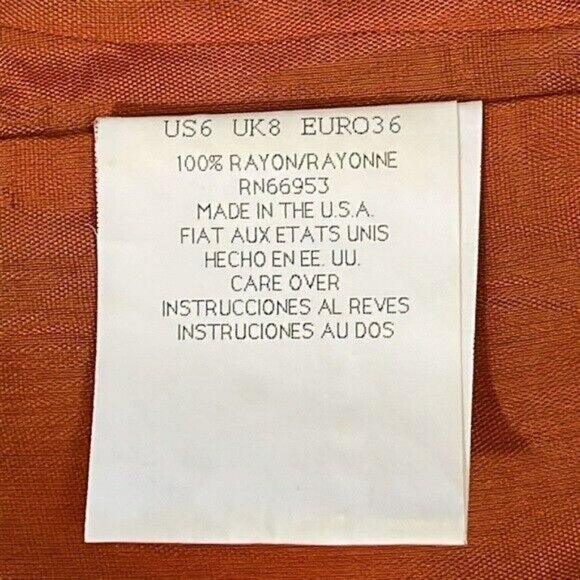 US6 UK8 EURO36
100% RAYON/RAYONNE
RN66953
MADE IN THE U.S.A.
FIAT AUX ETATS UNIS
HECHO EN EE. UU.
CARE OVER
INSTRUCCIONES AL REVES
INSTRUCIONES AU DOS